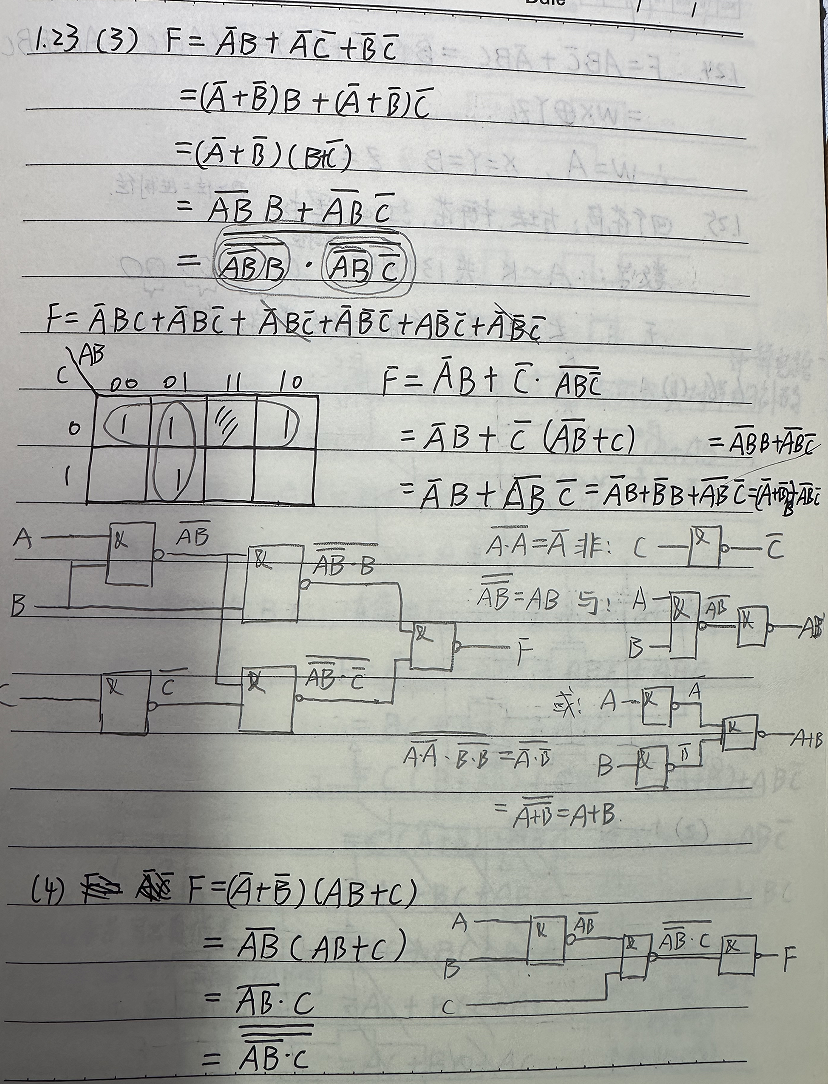 Date / /
1.23 (3) F = A̅B + A̅C̅ + B̅C̅
= (A̅+B̅)B + (A̅+B̅)C̅
= (A̅+B̅)(B+C̅)
= \overline{AB} B + \overline{AB} C̅
= \overline{\overline{\overline{AB}B} · \overline{\overline{AB} C̅}}
F = A̅BC + A̅BC̅ + A̅BC̅ + A̅B̅C̅ + AB̅C̅ + A̅B̅C̅
C AB 00 01 11 10
0 1 1 1
1 1
F = A̅B + C̅ · \overline{ABC̅}
= A̅B + C̅(\overline{AB}+C) = \overline{AB}B + \overline{AB}C̅
= A̅B + \overline{AB} C̅ = A̅B + B̅B + \overline{AB} C̅ = (A̅+B̅)B + \overline{AB}C̅
A & \overline{AB} & \overline{\overline{AB}·B}
B
& F
C & C̅ & \overline{\overline{AB}·C̅}
\overline{A·A} = A̅ 非: C & C̅
\overline{\overline{AB}} = AB 与: A B & \overline{AB} & AB
或: A & A̅ & A+B
B & B̅
\overline{\overline{A·A} · \overline{B·B}} = \overline{A̅·B̅}
= \overline{\overline{A+B}} = A+B.
(4) F = (A̅+B̅)(AB+C)
= \overline{AB}(AB+C)
= \overline{AB}·C
= \overline{\overline{\overline{AB}·C}}
A & \overline{AB} & \overline{\overline{AB}·C} & F
B
C